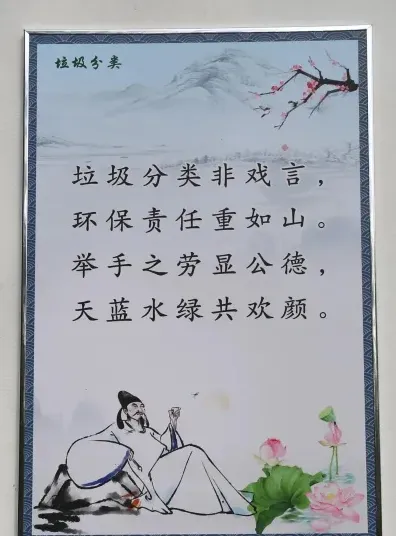 垃圾分类
垃圾分类非戏言，
环保责任重如山。
举手之劳显公德，
天蓝水绿共欢颜。